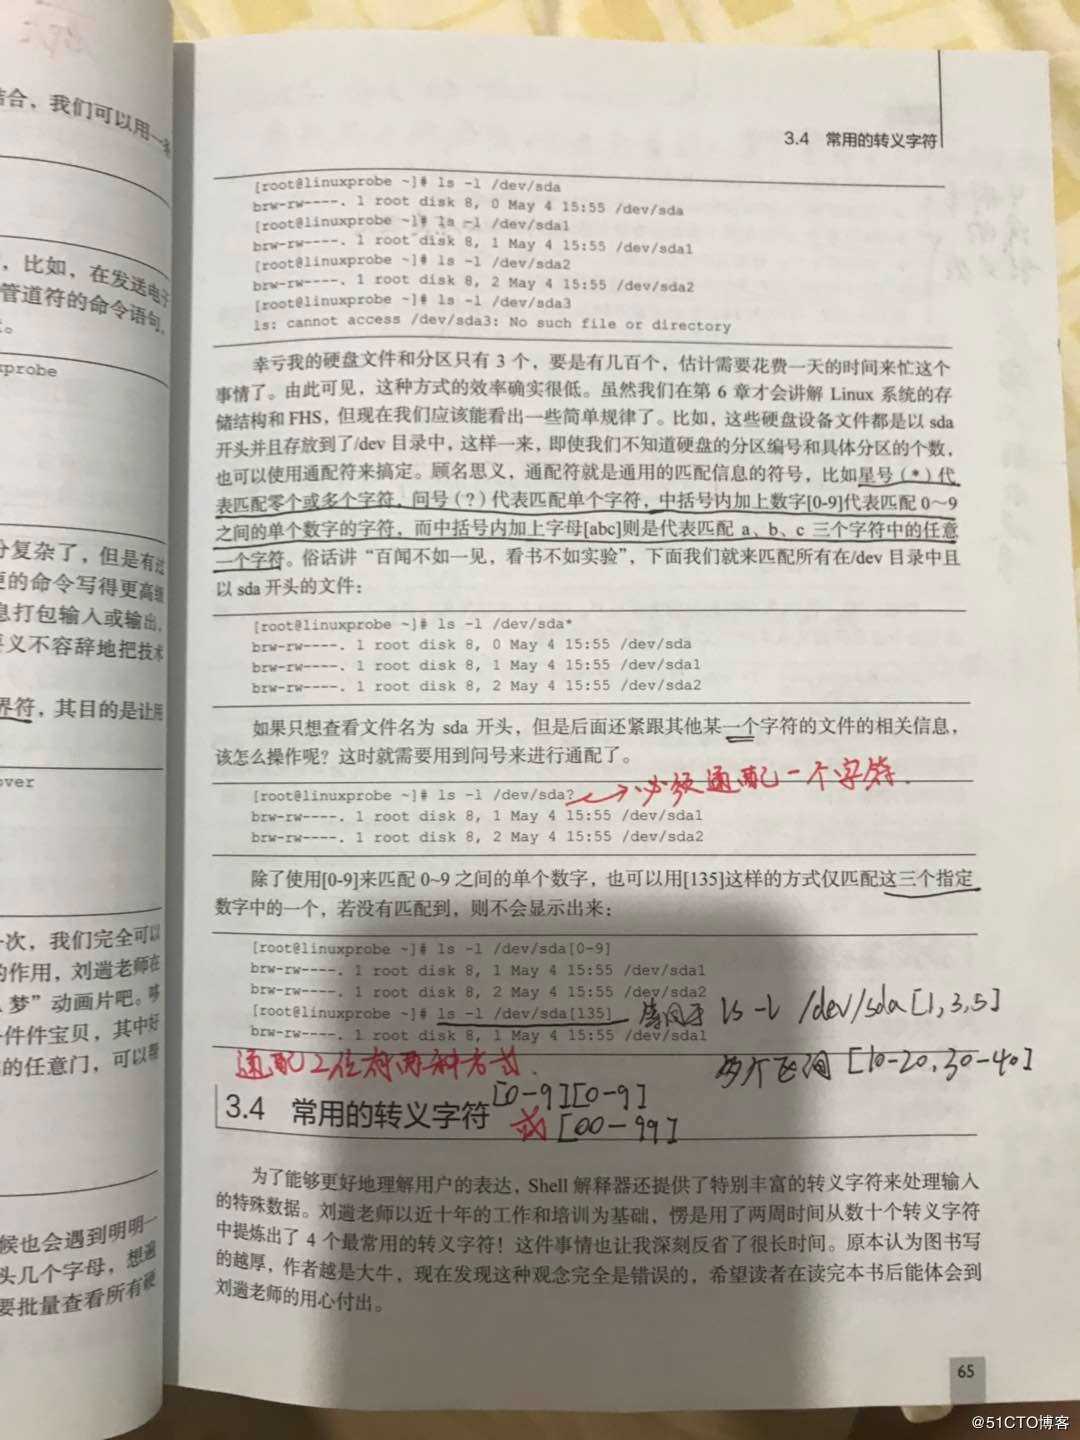 结合，我们可以用一条
，比如，在发送电子
管道符的命令语句，
probe
分复杂了，但是有过
更的命令写得更高级
息打包输入或输出，
要义不容辞地把技术
界符，其目的是让用
over
一次，我们完全可以
的作用，刘遄老师在
梦”动画片吧。哆
一件件宝贝，其中好
的任意门，可以帮
候也会遇到明明一
头几个字母，想遍
要批量查看所有硬
3.4 常用的转义字符
[root@linuxprobe ~]# ls -l /dev/sda
brw-rw----. 1 root disk 8, 0 May 4 15:55 /dev/sda
[root@linuxprobe ~]# ls -l /dev/sda1
brw-rw----. 1 root disk 8, 1 May 4 15:55 /dev/sda1
[root@linuxprobe ~]# ls -l /dev/sda2
brw-rw----. 1 root disk 8, 2 May 4 15:55 /dev/sda2
[root@linuxprobe ~]# ls -l /dev/sda3
ls: cannot access /dev/sda3: No such file or directory
幸亏我的硬盘文件和分区只有 3 个，要是有几百个，估计需要花费一天的时间来忙这个
事情了。由此可见，这种方式的效率确实很低。虽然我们在第 6 章才会讲解 Linux 系统的存
储结构和 FHS，但现在我们应该能看出一些简单规律了。比如，这些硬盘设备文件都是以 sda
开头并且存放到了/dev 目录中，这样一来，即使我们不知道硬盘的分区编号和具体分区的个数，
也可以使用通配符来搞定。顾名思义，通配符就是通用的匹配信息的符号，比如星号（*）代
表匹配零个或多个字符，问号（?）代表匹配单个字符，中括号内加上数字[0-9]代表匹配 0～9
之间的单个数字的字符，而中括号内加上字母[abc]则是代表匹配 a、b、c 三个字符中的任意
一个字符。俗话讲“百闻不如一见，看书不如实验”，下面我们就来匹配所有在/dev 目录中且
以 sda 开头的文件：
[root@linuxprobe ~]# ls -l /dev/sda*
brw-rw----. 1 root disk 8, 0 May 4 15:55 /dev/sda
brw-rw----. 1 root disk 8, 1 May 4 15:55 /dev/sda1
brw-rw----. 1 root disk 8, 2 May 4 15:55 /dev/sda2
如果只想查看文件名为 sda 开头，但是后面还紧跟其他某一个字符的文件的相关信息，
该怎么操作呢？这时就需要用到问号来进行通配了。
[root@linuxprobe ~]# ls -l /dev/sda? 必须通配一个字符.
brw-rw----. 1 root disk 8, 1 May 4 15:55 /dev/sda1
brw-rw----. 1 root disk 8, 2 May 4 15:55 /dev/sda2
除了使用[0-9]来匹配 0~9 之间的单个数字，也可以用[135]这样的方式仅匹配这三个指定
数字中的一个，若没有匹配到，则不会显示出来：
[root@linuxprobe ~]# ls -l /dev/sda[0-9]
brw-rw----. 1 root disk 8, 1 May 4 15:55 /dev/sda1
brw-rw----. 1 root disk 8, 2 May 4 15:55 /dev/sda2
[root@linuxprobe ~]# ls -l /dev/sda[135] 等同于 ls -l /dev/sda[1,3,5]
brw-rw----. 1 root disk 8, 1 May 4 15:55 /dev/sda1
通配2位有两种方式. 两个区间 [10-20,30-40]
[0-9][0-9]
3.4 常用的转义字符
或 [00-99]
为了能够更好地理解用户的表达，Shell 解释器还提供了特别丰富的转义字符来处理输入
的特殊数据。刘遄老师以近十年的工作和培训为基础，愣是用了两周时间从数十个转义字符
中提炼出了 4 个最常用的转义字符！这件事情也让我深刻反省了很长时间。原本认为图书写
的越厚，作者越是大牛，现在发现这种观念完全是错误的，希望读者在读完本书后能体会到
刘遄老师的用心付出。
65
@51CTO博客